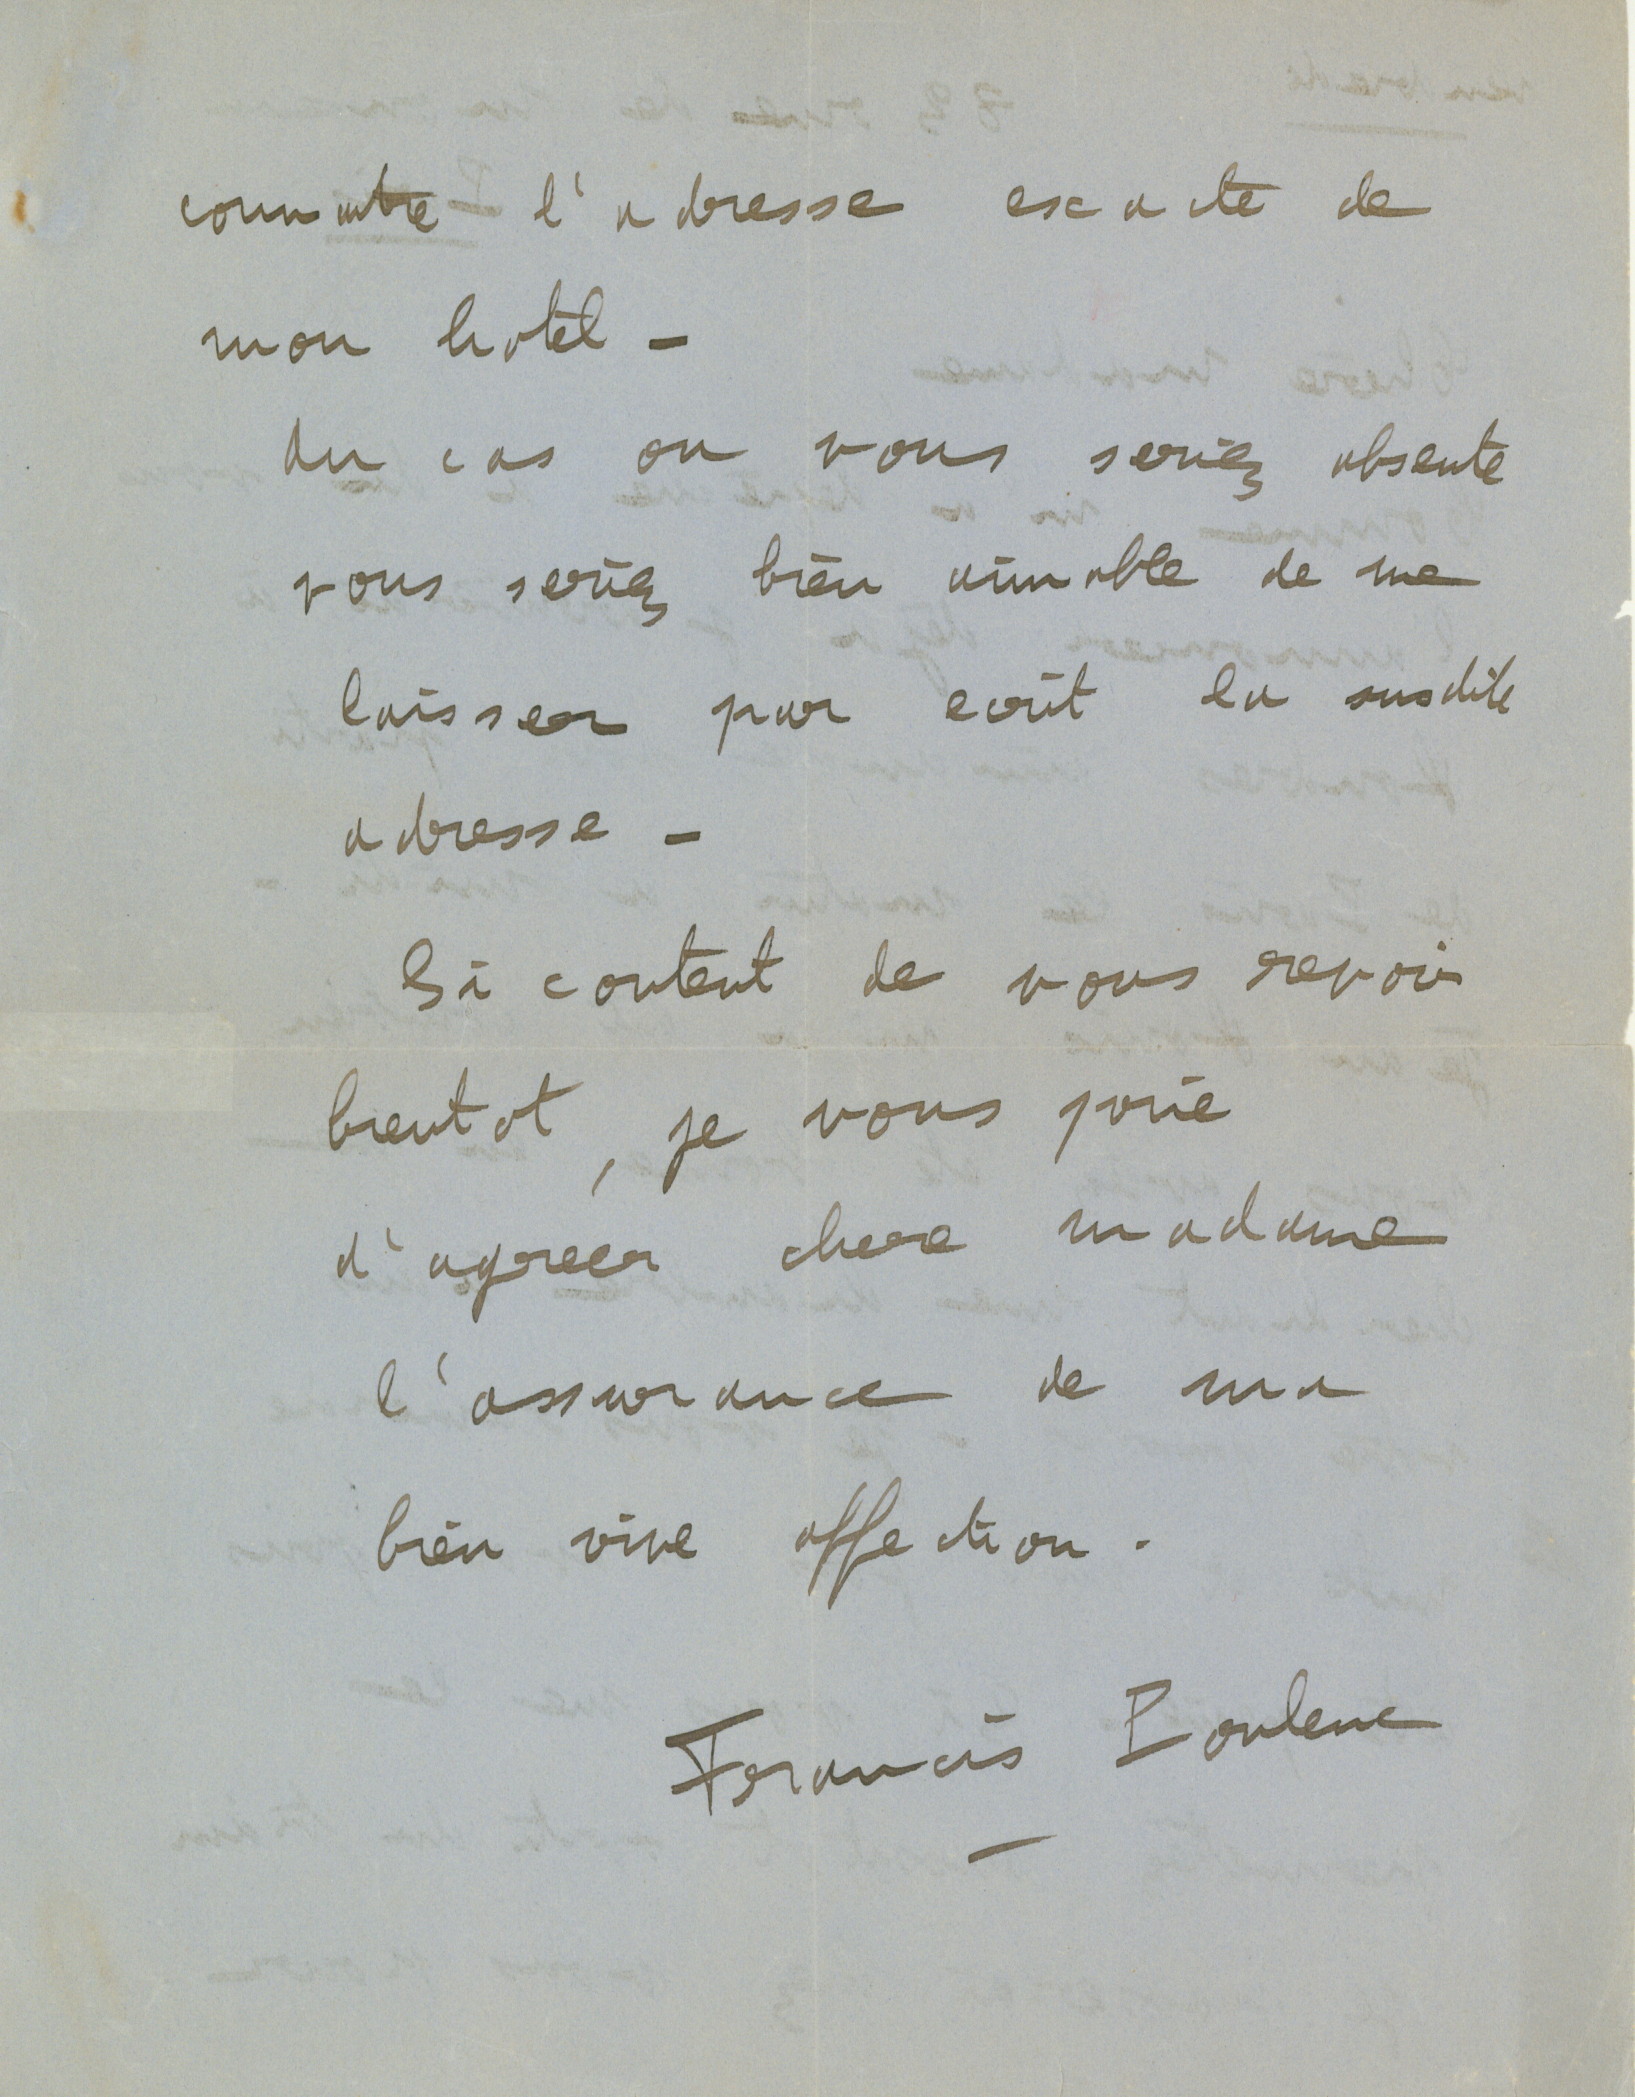 connaitre l'adresse exacte de
mon hotel –
Au cas ou vous seriez absente
vous seriez bien aimable de me
laisser par ecrit la susdite
adresse –
Si content de vous revoir
bientot, je vous prie
d'agréer chere madame
l'assurance de ma
bien vive affection.
Francis Poulenc